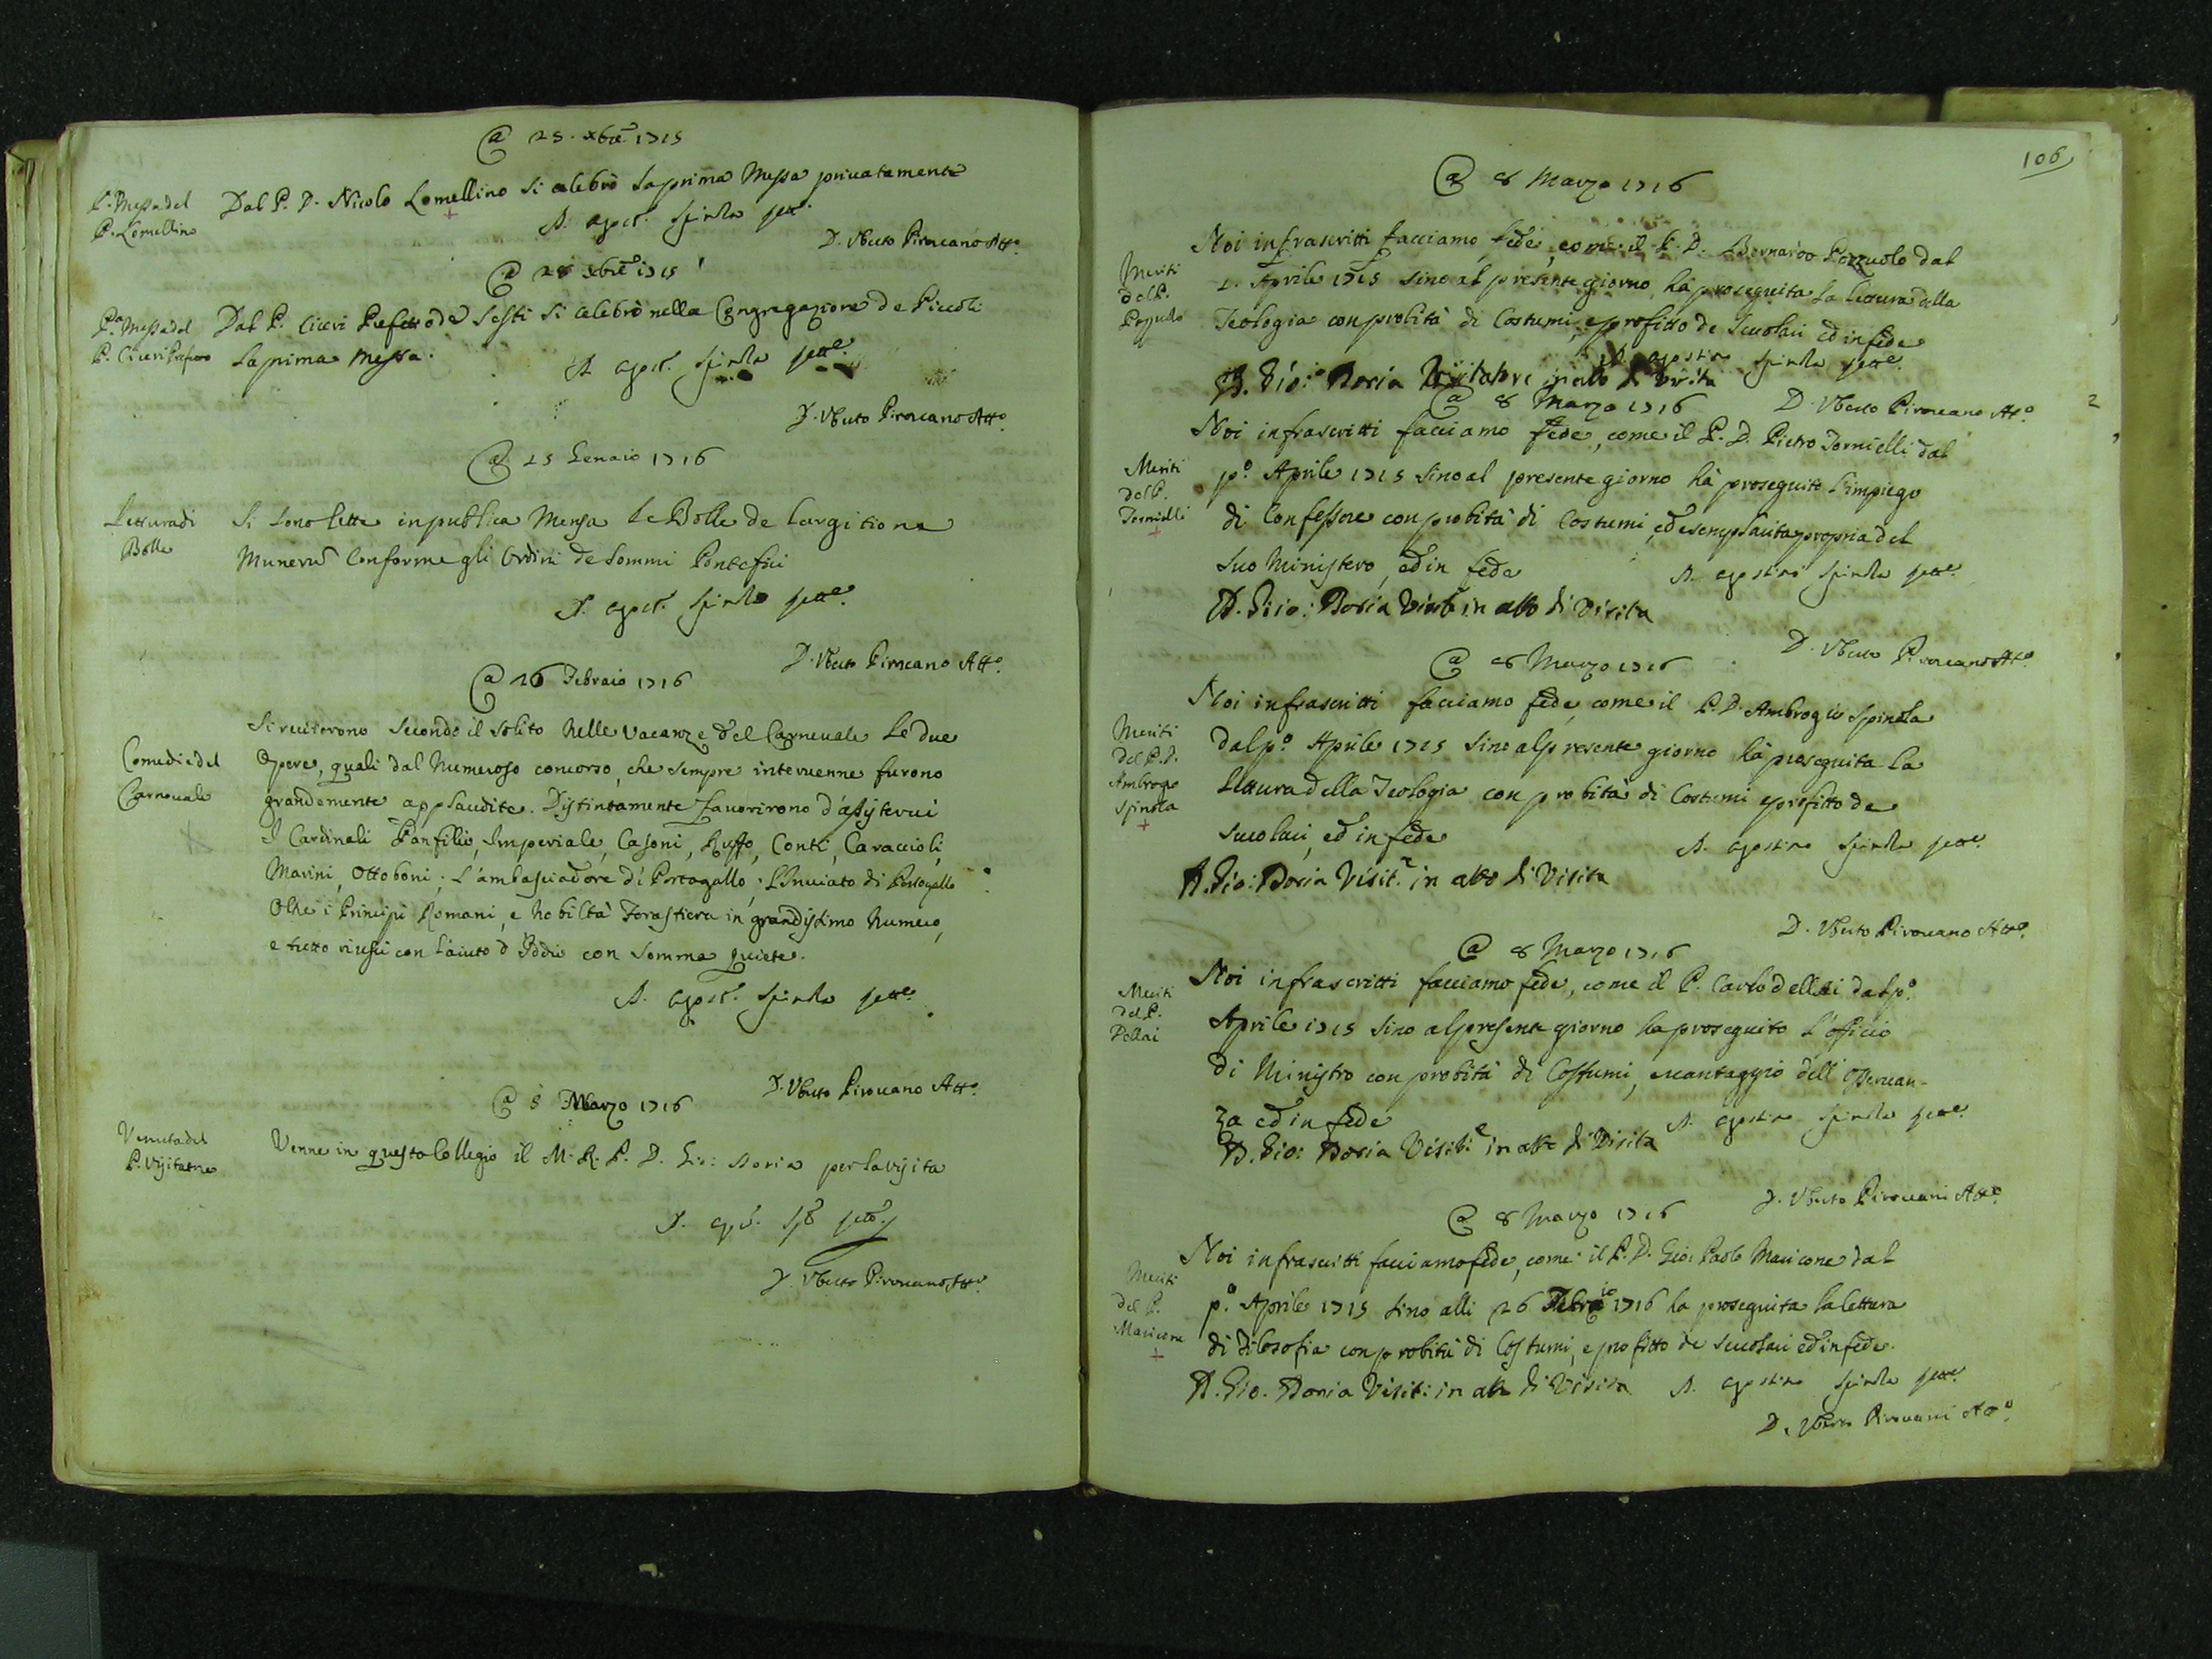 @ 25. Xbre 1715
P.a Messa del
P. Lomellino
Dal P. D. Nicolo Lomellino si celebrò la prima Messa privatamente
D. Agost. Spinola Prete.
D. Uberto Pirovano Att.o
@ 28 Xbre 1715
P.a Messa del
P. Ciceri Prefetto
Dal P. Ciceri Prefetto de Sesti si celebrò nella Congregazione de Piccoli
la prima Messa.
D. Agost. Spinola
D. Uberto Pirovano Att.o
@ 25 Genaio 1716
Lettura di
Bolle
Si sono lette in publica Mensa le Bolle de largitione
Muneru conforme gli Ordini de Sommi Pontefici
D. Agost. Spinola
D. Uberto Pirovano Att.o
@ 26 Febraio 1716
Comedie del
Carnovale
Si recitorono secondo il solito nelle vacanze del Carnevale le due
Opere, quali dal numeroso concorso, che sempre intervenne furono
grandemente applaudite. Distintamente favorirono d'assistervi
I Cardinali Panfilio, Imperiale, Casoni, Ruffo, Conti, Caraccioli,
Marini, Ottoboni. L'ambasciadore di Portogallo. L'Inviato di Portogallo
Oltre i Principi Romani, e nobiltà forastiera in grandissimo numero,
e tutto riuscì con l'aiuto d'Iddio con somma quiete.
D. Agost. Spinola
D. Uberto Pirovano Att.o
@ 5 Marzo 1716
Venuta del
P. Visitatore
Venne in questo Collegio il M. R. P. D. Gio: Doria per la visita
D. Uberto Pirovano Att.o
106
@ 8 Marzo 1716
Meriti
del P.
Pozzuolo
Noi infrascritti facciamo fede, come il P. D. Bernardo Pozzuolo dal
1. Aprile 1715 sino al presente giorno hà proseguita la lettura della
Teologia con probità di Costumi, e profitto de Scuolari ed in fede
D. Agostino Spinola
D. Gio: Doria Visitatore in atto di Visita
D. Uberto Pirovano Att.o
@ 8 Marzo 1716
Meriti
del P.
Tornielli
Noi infrascritti facciamo fede, come il P. D. Pietro Tornielli dal
p.o Aprile 1715 sino al presente giorno hà proseguito l'impiego
di Confessore con probità di Costumi, ed esemplarità propria del
suo Ministero, ed in fede
D. Agostino Spinola
D. Gio: Doria Visit.e in atto di Visita
D. Uberto Pirovano Att.o
@ 8 Marzo 1716
Meriti
del P. D.
Ambrogio
Spinola
Noi infrascritti facciamo fede, come il P. D. Ambrogio Spinola
dal p.o Aprile 1715 sino al presente giorno hà proseguita la
lettura della Teologia con probità di Costumi e profitto de
Scuolari, ed in fede
D. Agostino Spinola
D. Gio: Doria Visit.e in atto di Visita
D. Uberto Pirovano Att.o
@ 8 Marzo 1716
Meriti
del P.
Dellai
Noi infrascritti facciamo fede, come il P. Carlo dellai dal p.o
Aprile 1715 sino al presente giorno ha proseguito l'officio
di Ministro con probità di Costumi, e vantaggio dell'osservan-
za ed in fede
D. Agostino Spinola
D. Gio: Doria Visit.e in atto di Visita
D. Uberto Pirovani Att.o
@ 8 Marzo 1716
Meriti
del P.
Maricone
Noi infrascritti facciamo fede, come il P. D. Gio: Paolo Maricone dal
p.o Aprile 1715 sino alli 26 Febraio 1716 ha proseguita la lettura
di Filosofia con probità di Costumi, e profitto de Scuolari ed in fede.
D. Gio: Doria Visit: in atto di Visita D. Agostino Spinola
D. Uberto Pirovani Att.o